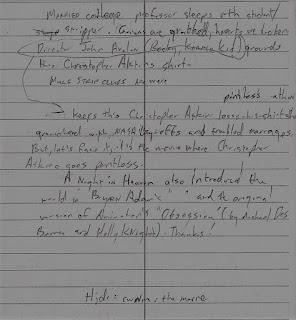 Married college professor sleeps with student/
stripper. Genuis are grabbed, hearts are broken
Director John Avalon (Rocky, Karate Kid) grounds
his Christopher Atkins shirt
Male strip clubs are were
pantless athon
keeps this Christopher Atkins loses-his-shirt
grounded with, NASA layoffs and troubled marriages.
But, let's face it, it is the movie where Christopher
Atkins goes pantless.
A Night in Heaven also introduced the
world to Bryan Adam's " " and the original
version of Animotion's "Obsession" (by Michael Des
Barres and Holly Knight). Thanks!
Hjds: cwdm: the movie